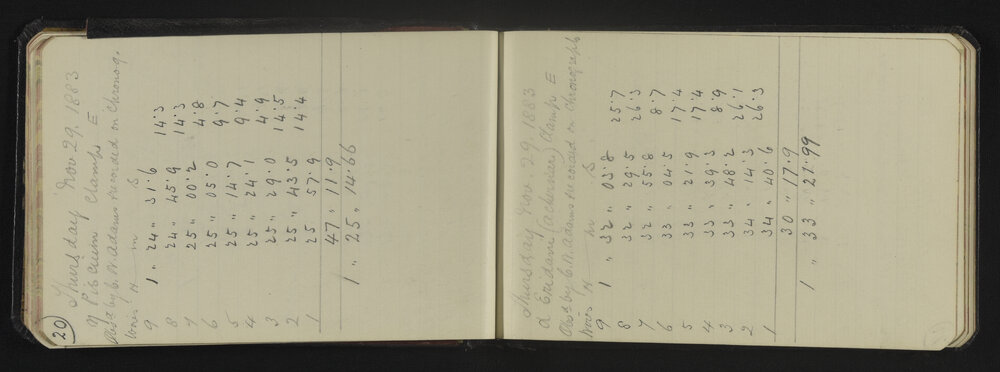 20
Thursday Nov 29, 1883
η Piscium Clamps E
Obs'd by C.B. Adams recorded on Chronog.
Wires H m S
9 1 " 24 " 31.6 14.3
8 24 " 45.9 14.3
7 25 " 00.2 4.8
6 25 " 05.0 9.7
5 25 " 14.7 9.4
4 25 " 24.1 4.9
3 25 " 29.0 14.5
2 25 " 43.5 14.4
1 25 57.9
47 " 11.9
1 " 25 " 14.66
Thursday Nov 29, 1883
α Eridani (Achernar) Clamps E
Obs'd by C.B. Adams recorded on Chronograph
Wires H m S
9 1 " 32 " 03.8 25.7
8 32 " 29.5 26.3
7 32 " 55.8 8.7
6 33 " 04.5 17.4
5 33 " 21.9 17.4
4 33 " 39.3 8.9
3 33 " 48.2 26.1
2 34 " 14.3 26.3
1 34 " 40.6
30 " 17.9
1 " 33 " 21.99